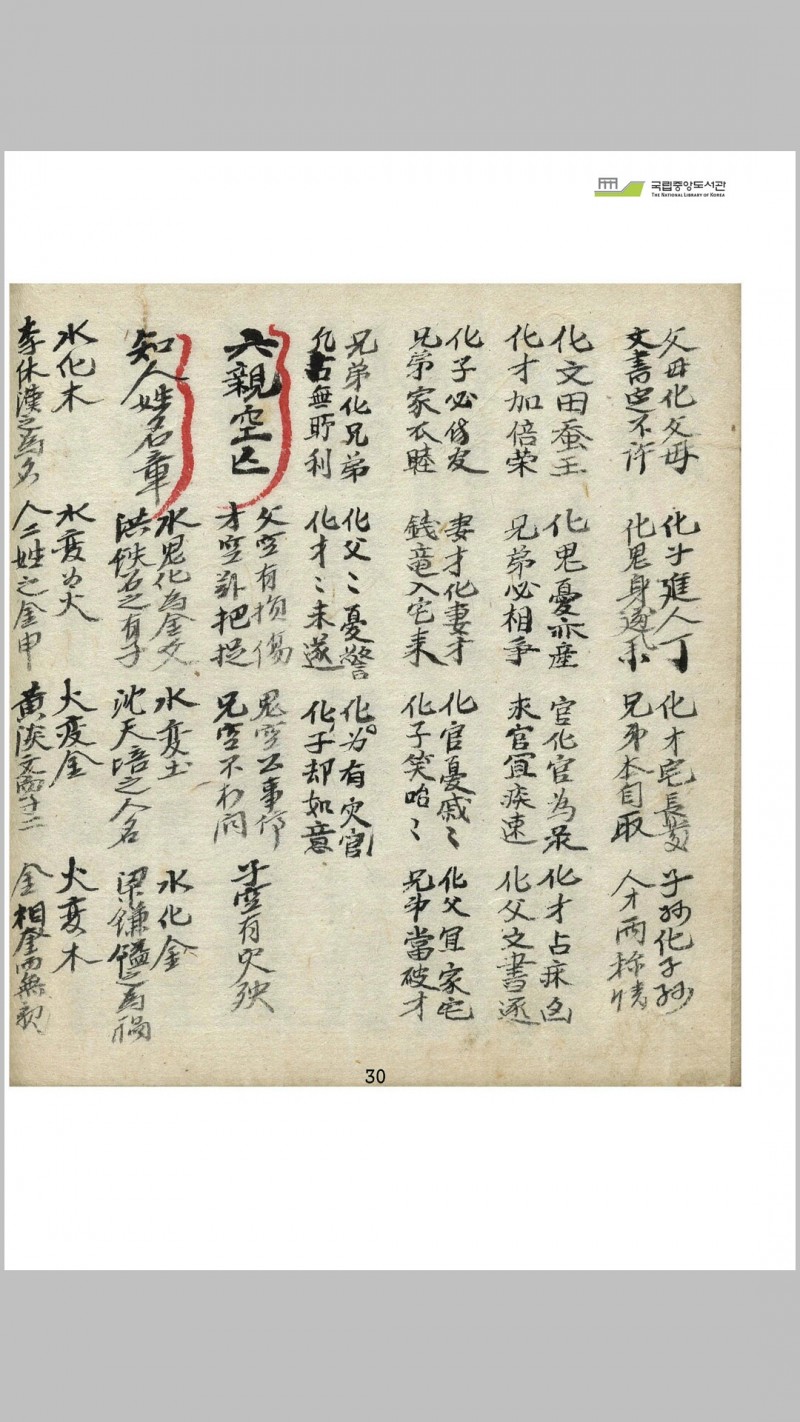 국립중앙도서관
THE NATIONAL LIBRARY OF KOREA
父母化父母 化子進人丁 化才宅長 子孫化子孫
文書 不許 化鬼身 兄弟本自取 人才両称情
化文田蚕王 化鬼憂亦産 官化官為 化才占病凶
化才加倍荣 兄弟必相争 求官冝疾速 化父文書遂
化子必傍友 妻才化妻才 化官憂戚〻 化父冝家宅
兄弟家不睦 銭竜入宅来 化子笑哈〻 兄弟當破才
兄弟化兄弟 化父〻憂警 化 有灾官
凡占無所利 化才〻未遂 化子却如意
六親空亡 父空有損傷 鬼空公事停 子空有灾殃
才空難把捉 兄空不わ問
知人姓名章 水鬼化為金文 水変土 水化金
洪鉄石之有子 沈天培之人名 梁鎌
水化木 水変為火 火変金 火変木
李休漢之為名 人二姓之金申 黄漢文 金
30